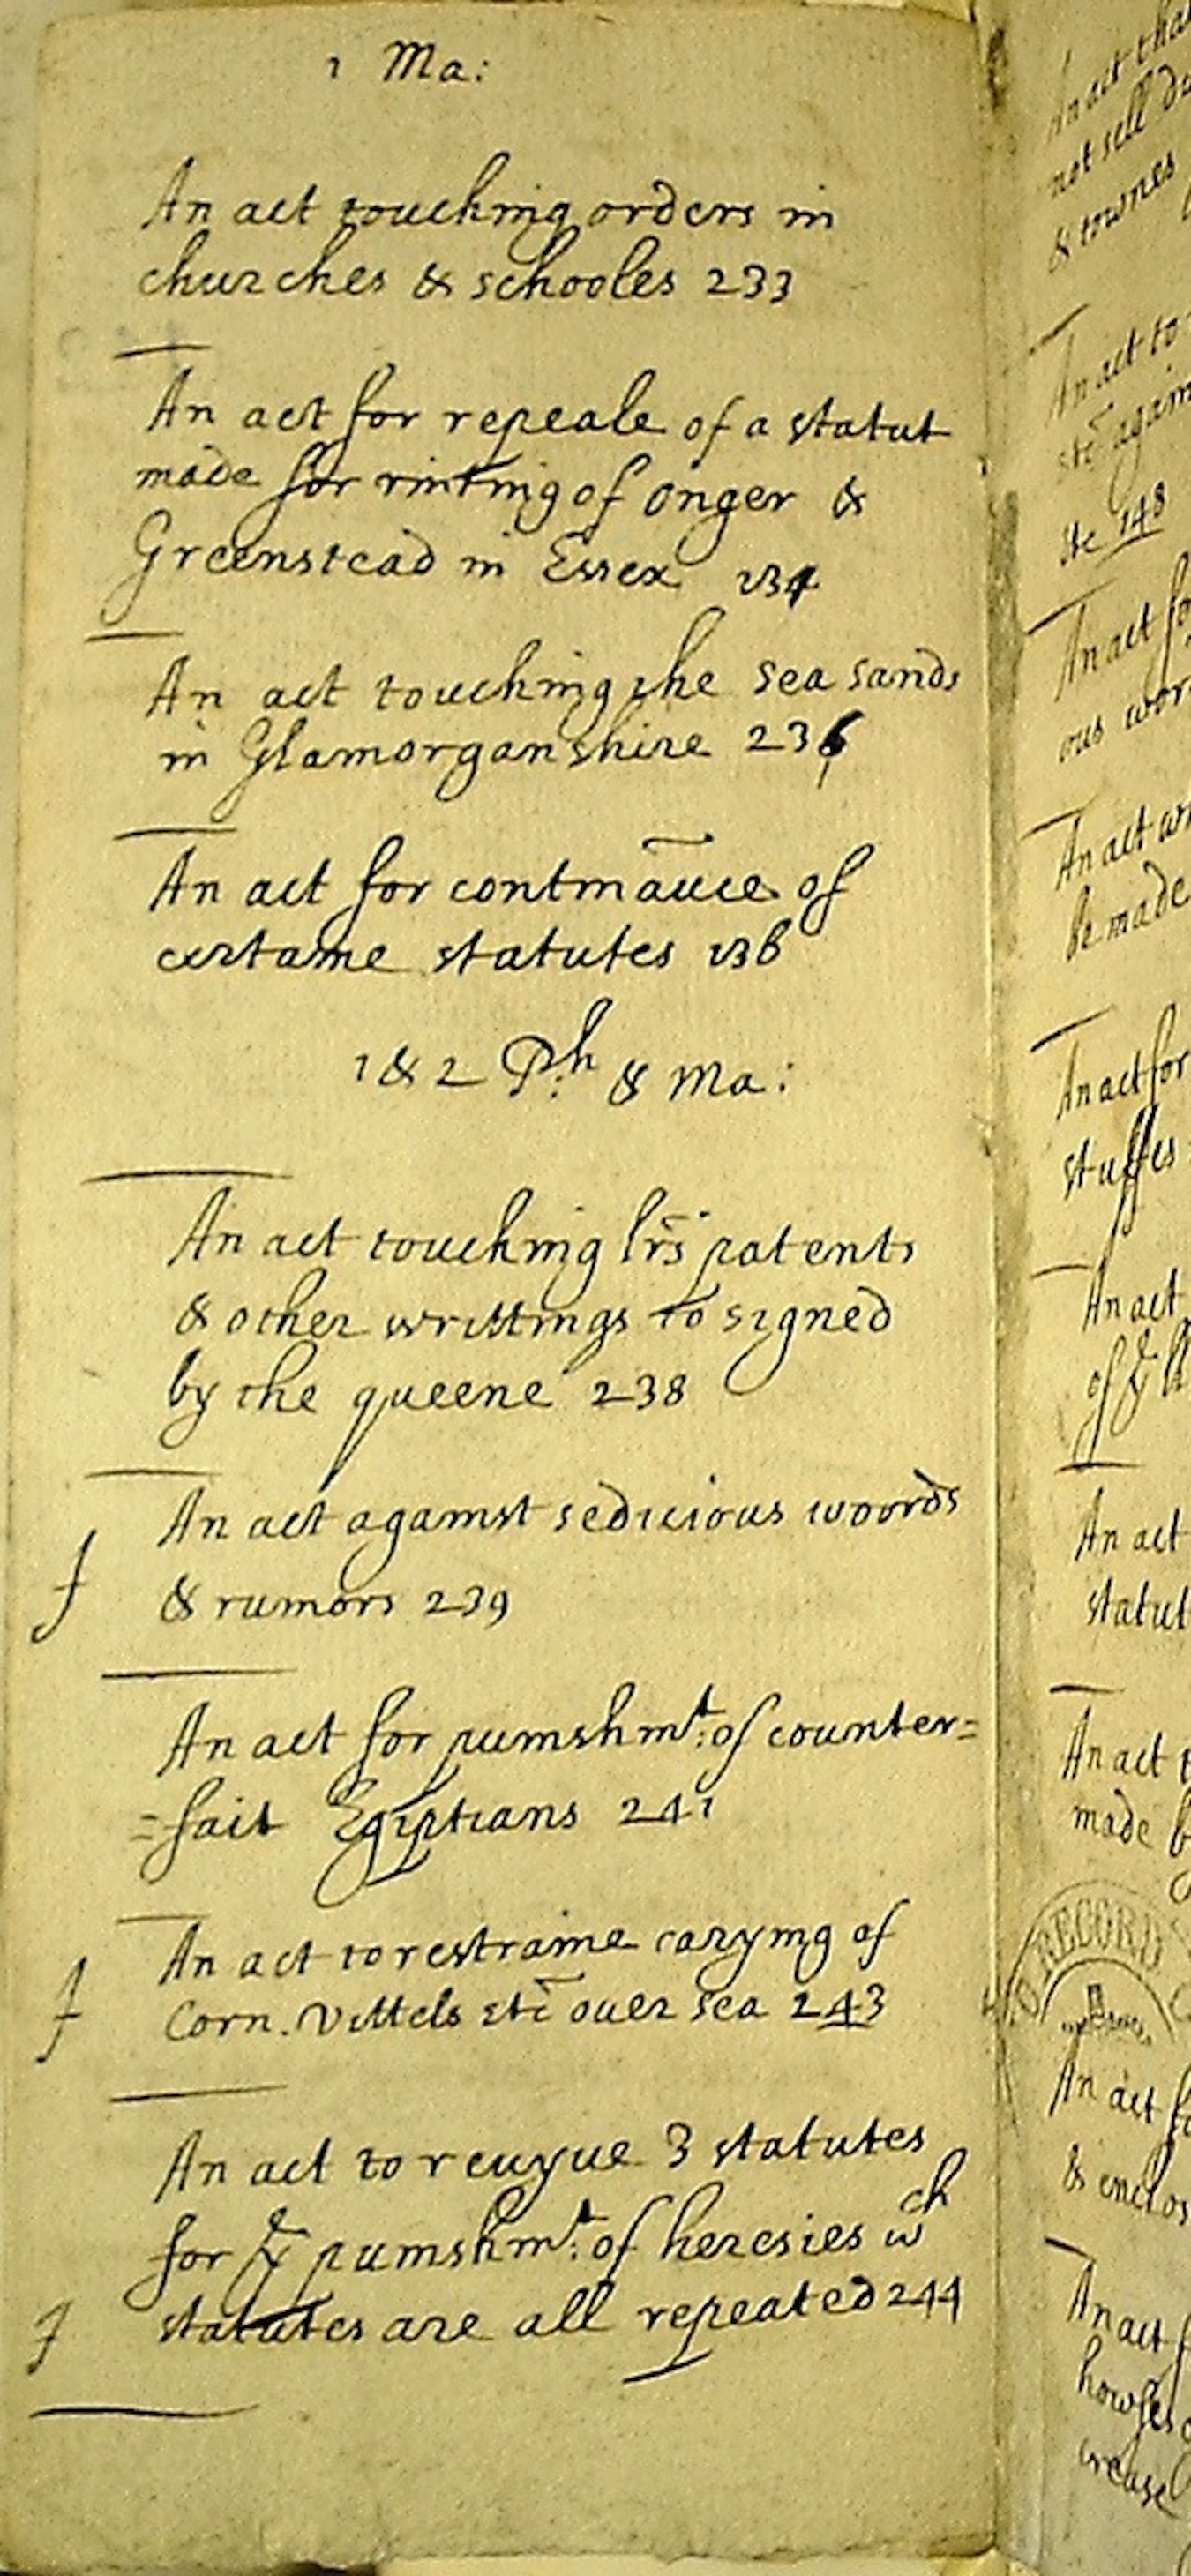 1 Ma:
An act touching orders in
churches & schooles 233
An act for repeale of a statut
made for vniting of onger &
Greenstead in Essex 234
An act touching the sea sands
in Glamorganshire 236
An act for contināuce of
certaine statutes 236
1 & 2 Ph: & Ma:
An act touching lr̃s patents
& other writtings to signed
by the queene 238
An act against sedicious woords
& rumors 239
An act for punishmt: of counter=
=fait Egiptians 241
An act to restraine carying of
Corn. vittels etc̃ ouer sea 243
An act to reuyue 3 statutes
for ye punishmt: of heresies wch
statutes are all repeated 244
An act
not sell
& townes
An act to
again
etc 148
An act fo
ous wor
An act
be made
An act for
stuffes
An act
of ye
An act
statut
An act
made
RECORD
An act
& enclos
An act
howses
crease